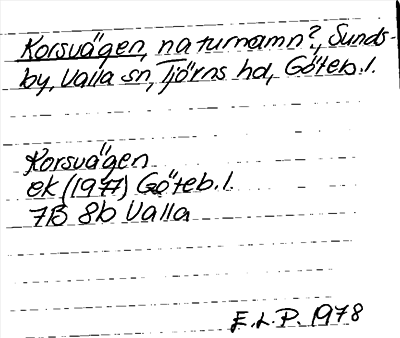 Korsvägen, naturnamn?, Sunds-
by, Valla sn, Tjörns hd, Göteb.l.
Korsvägen
ek (1977) Göteb.l.
7B 8b Valla
E.L.P. 1978